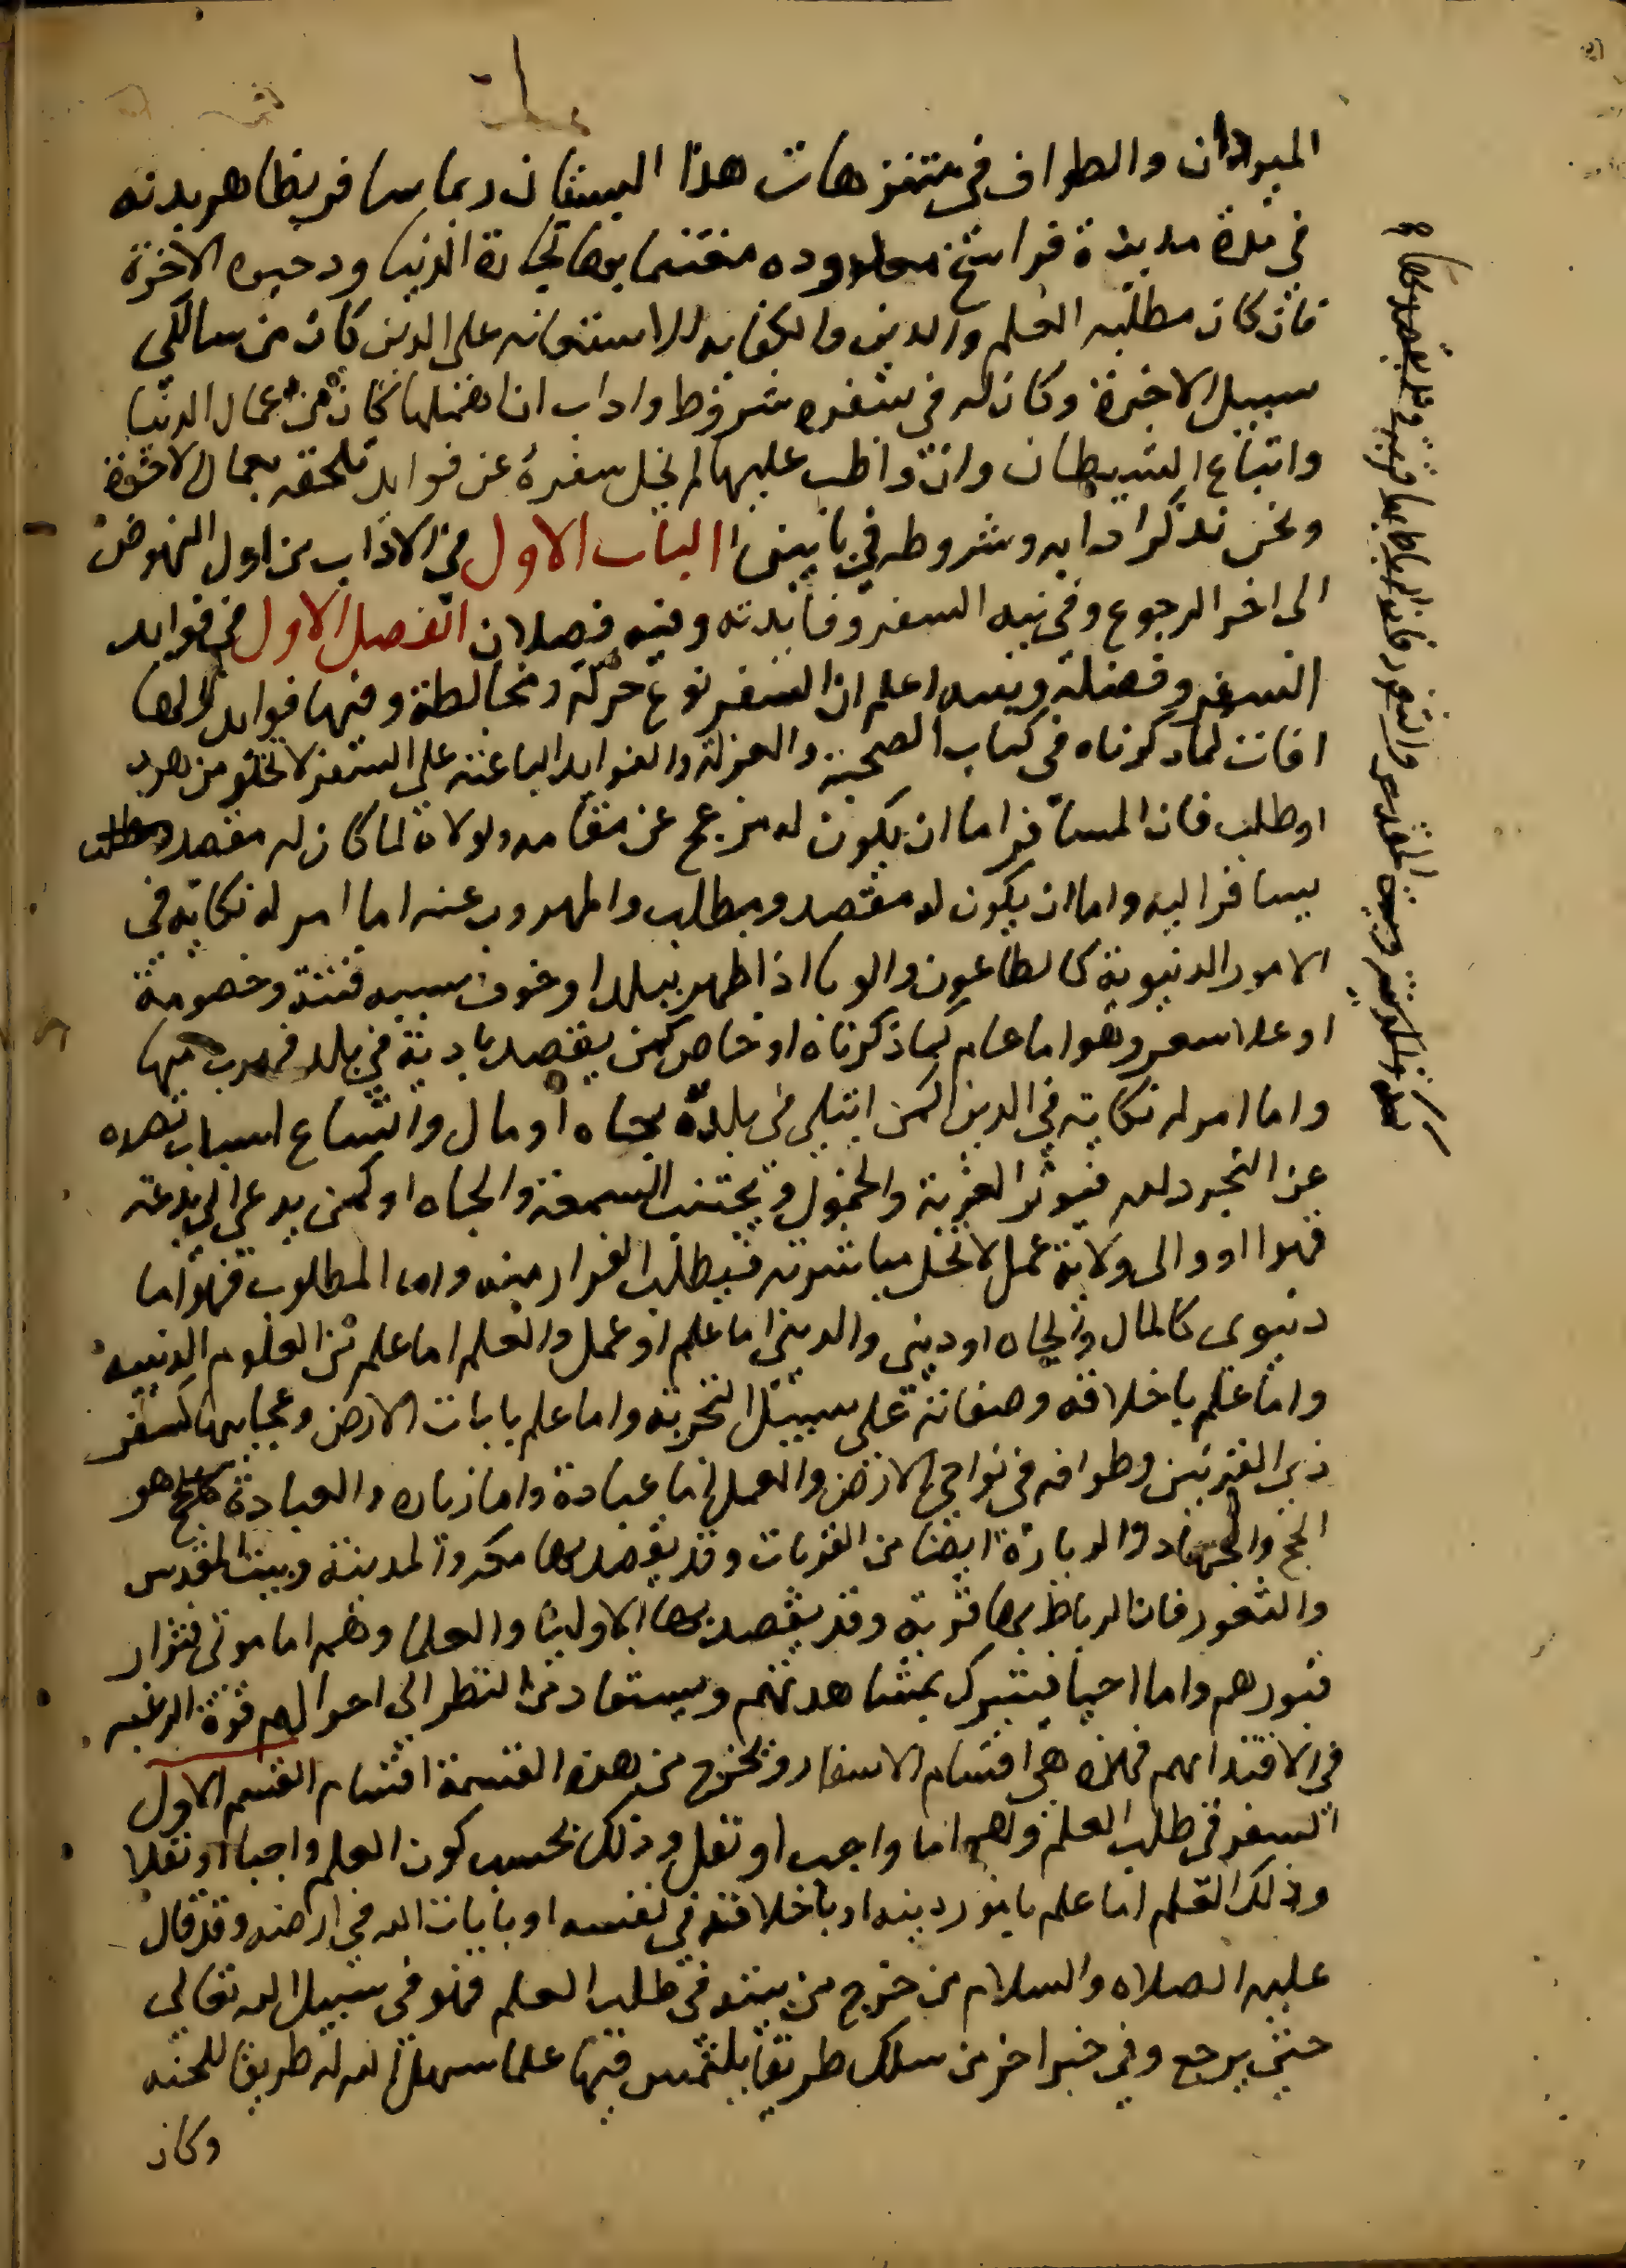 الميدان والطواف في متنزهات هذا البستان ربما سافر بظاهر بدنه
في مدة مديدة فراسخ معدوده مغتنما بها تجارة الدنيا وذخيره الاخرة
فان كان مطلبه العلم والدين والكفايه للاستعانه على الدين كان من سالكي
سبيل الاخرة وكان له في سفره شروط واداب ان اهملها كان من عمال الدنيا
واتباع الشيطان وان واظب عليها لم يخل سفره عن فوايد تلحقه بعمال الاخرة
ونحن نذكر ادابه وشروطه في بابين الباب الاول في الاداب من اول النهوض
الى اخر الرجوع وفي نيه السفر وفائدته وفيه فصلان الفصل الاول في فوايد
السفر وفضله ونيته اعلم ان السفر نوع حركة ومخالطة وفيها فوايد ولها
افات كما ذكرناه في كتاب الصحبة والعزلة والفوايد الباعثه على السفر لا تخلو من هرب
او طلب فان المسافر اما ان يكون له مزعج عن مقامه ولولاه لما كان له مقصد ومطلب
يسافر اليه واما ان يكون له مقصد ومطلب والمهروب عنه اما امر له نكايه في
الامور الدنيوية كالطاعون والوبا اذا ظهر ببلد او خوف سببه فتنة وخصومة
او غلا سعر وهو اما عام كما ذكرناه او خاص كمن يقصد باذية في بلد فهرب منها
واما امر له نكاية في الدين كمن ابتلي في بلده بجاه او مال واتساع اسباب تصده
عن التجرد لله فيوثر الغربة والخمول ويجتنب السمعة والجاه او كمن يدعى الى بدعه
قهرا او الى ولاية عمل لا تحل مباشرته فيطلب الفرار منه واما المطلوب فهو اما
دنيوى كالمال والجاه او ديني والديني اما علم او عمل والعلم اما علم من العلوم الدينيه
واما علم باخلاقه وصفاته على سبيل التجربة واما علم بايات الارض وعجايبها كسفر
ذي القرنين وطوافه في نواحي الارض والعمل اما عبادة واما زياره والعبادة هو
الحج والجهاد والزيارة ايضا من القربات وقد يقصد بها مكه والمدينة وبيت المقدس
والثغور فان الرباط بها قربة وقد يقصد بها الاوليا والعلما وهم اما موتى فتزار
قبورهم واما احيا فيتبرك بمشاهدتهم ويستفاد من النظر الى احوالهم قوة الرغبه
في الاقتدا بهم فهذه هي اقسام الاسفار وتخرج من هذه القسمة اقسام القسم الاول
السفر في طلب العلم وهو اما واجب او نفل وذلك بحسب كون العلم واجبا او نفلا
وذلك العلم اما علم بامور دينه او باخلاقه في نفسه او بايات الله في ارضه وقد قال
عليه الصلاه والسلام من خرج من بيته في طلب العلم فهو في سبيل الله تعالى
حتى يرجع وفي خبر اخر من سلك طريقا يلتمس فيها علما سهل الله له طريقا للجنه
وكان
المقدس والثغور فان الرباط بها قربة وقد يقصد بها